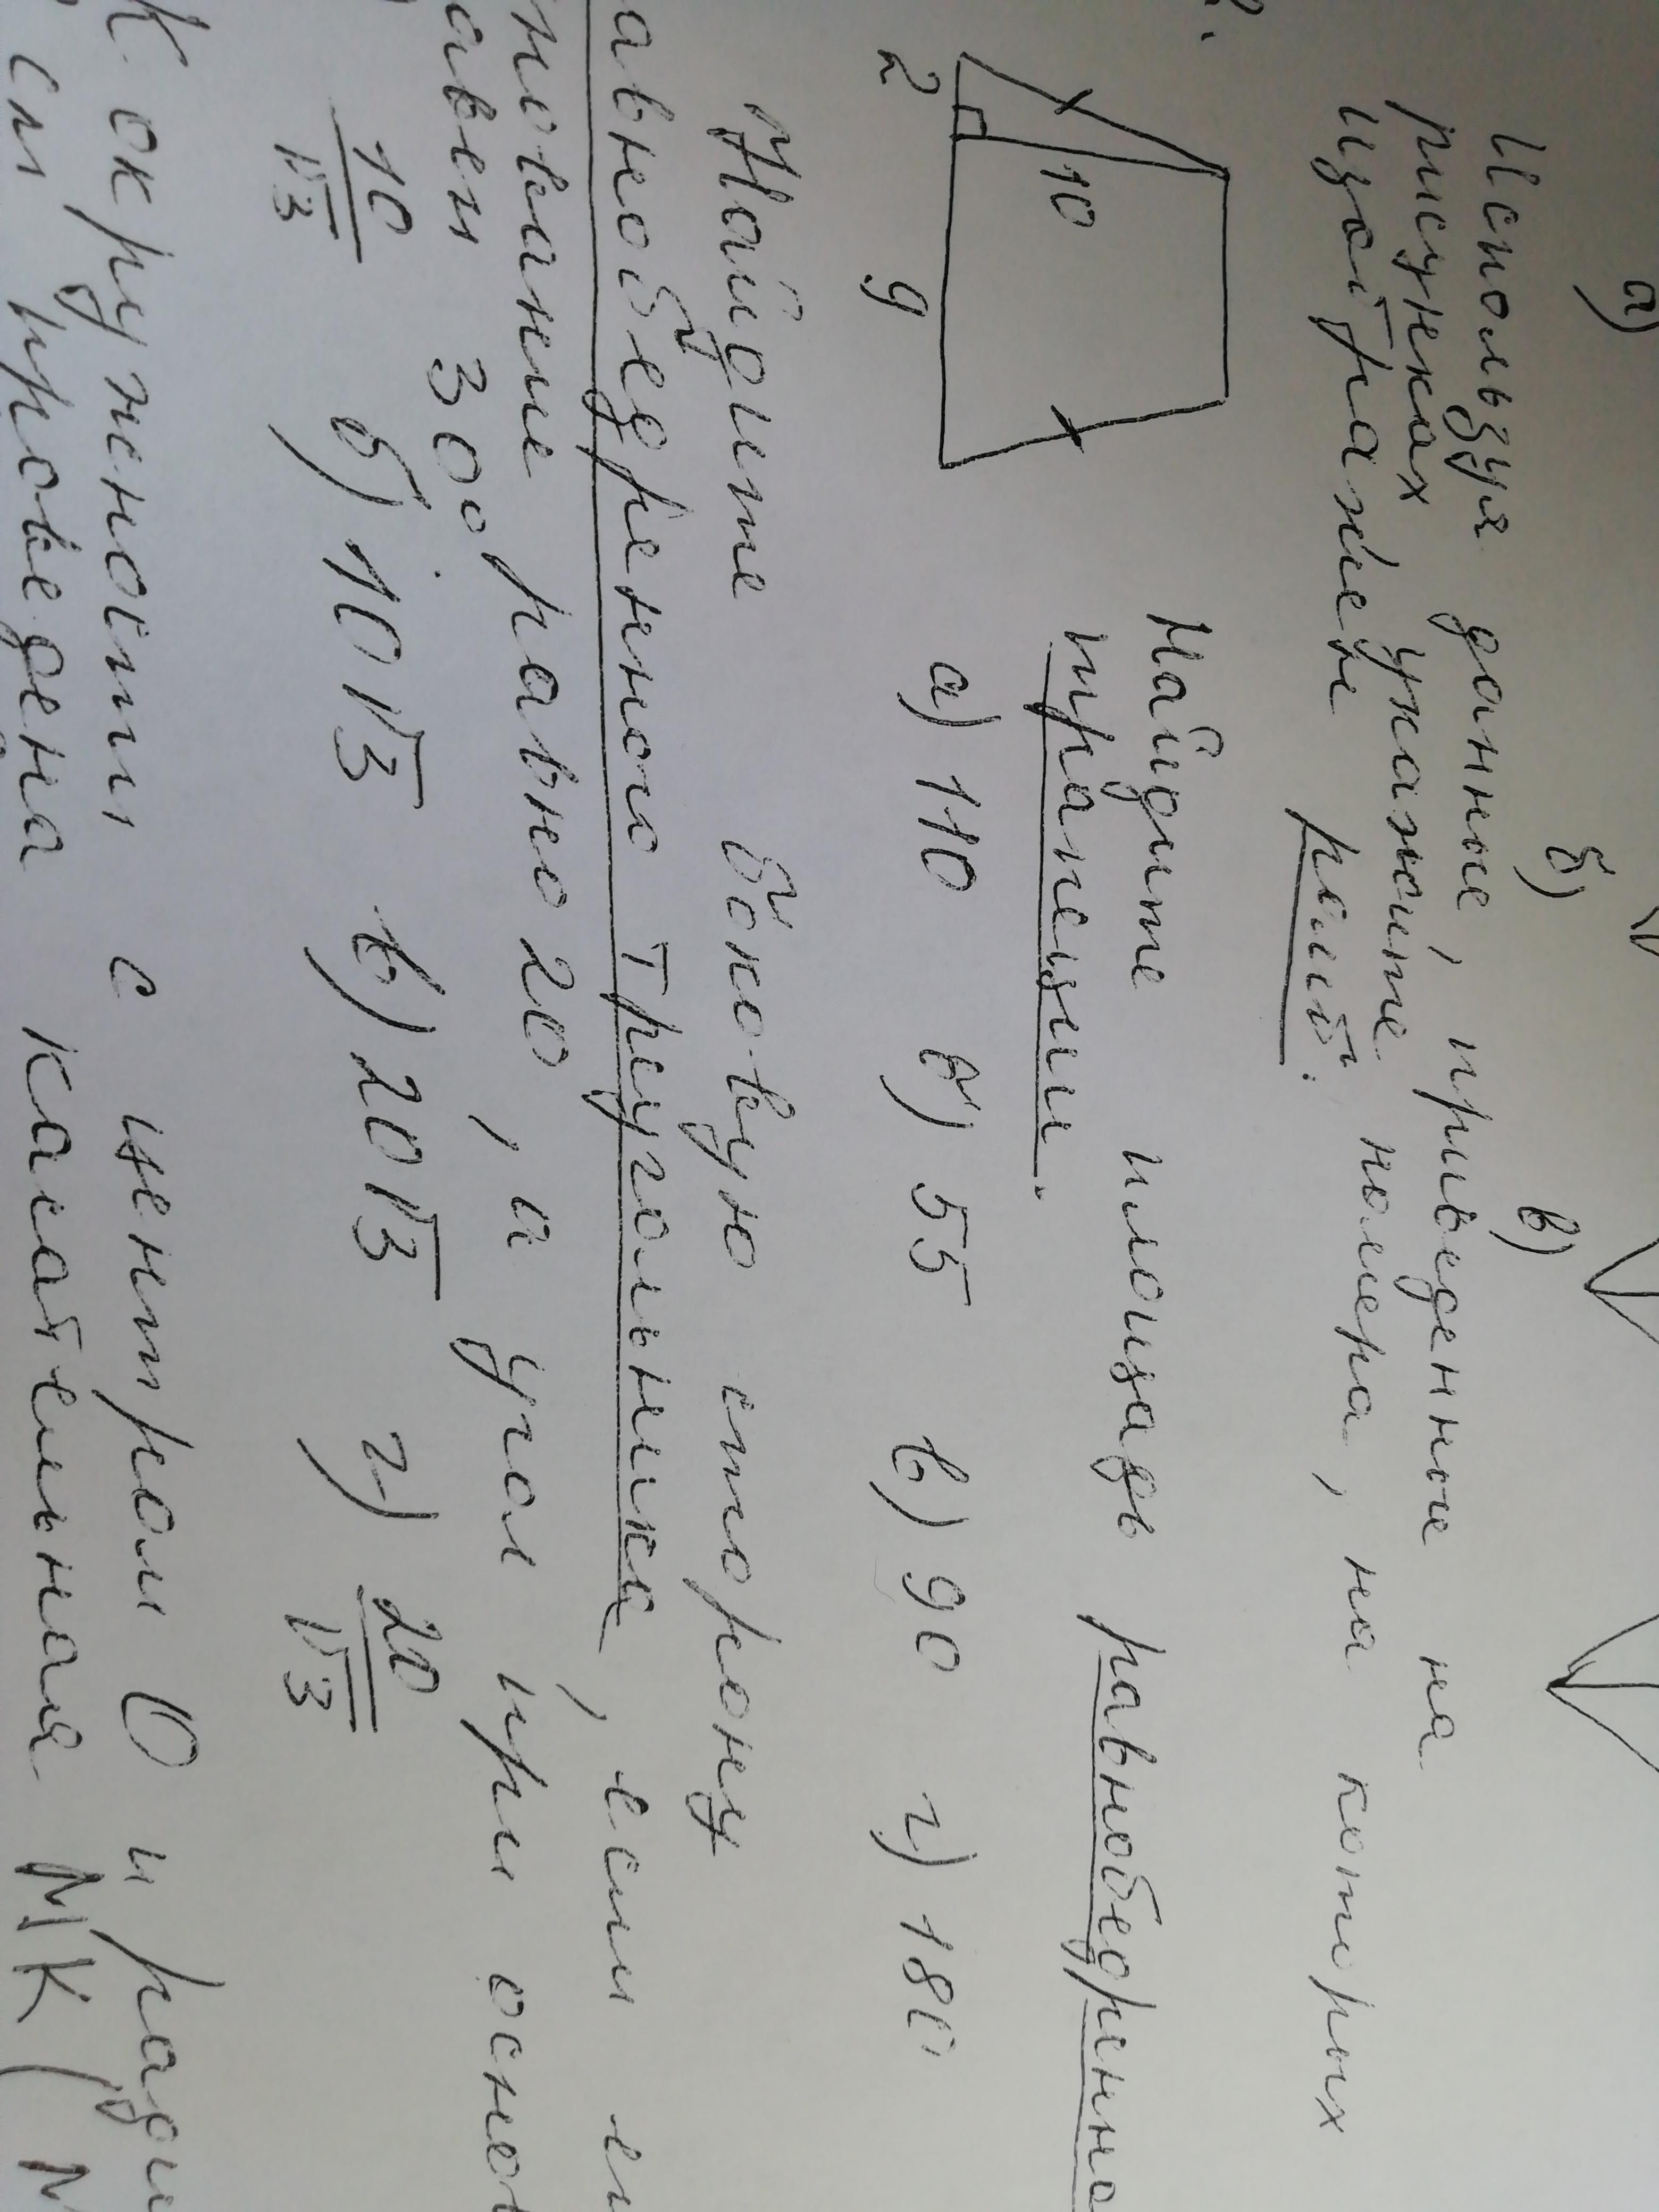 а) б) в)
Используя данные, приведенные на
рисунках укажите номера, на которых
изображен ромб.
Найдите площадь равнобедренно
трапеции.
10
2 9
а) 110 б) 55 в) 90 г) 180
Найдите боковую сторону
авнобедренного треугольника, если ег
нование равно 20, а угол при основ
авен 30°.
10/√3 б) 10√3 в) 20√3 г) 20/√3
К окружности с центром О и ради
см проведена касательная МК (М